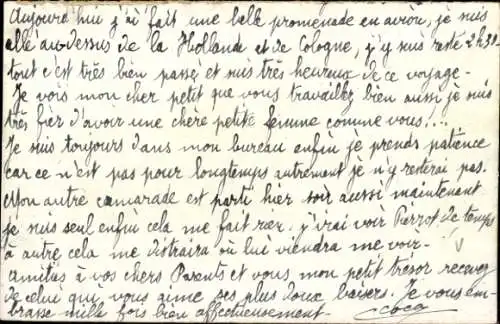 Aujourd'hui j'ai fait une belle promenade en avion, je suis
allé au-dessus de la Hollande et de Cologne, j'y suis resté 2h30
tout c'est très bien passé et suis très heureux de ce voyage -
Je vois mon cher petit que vous travaillez bien aussi je suis
très fier d'avoir une chère petite femme comme vous!...
Je suis toujours dans mon bureau enfin je prends patience
car ce n'est pas pour longtemps autrement je n'y resterai pas.
Mon autre camarade est parti hier soir aussi maintenant
je suis seul enfin cela me fait rien. j'irai voir Pierrot de temps
à autre cela me distraira où lui viendra me voir -
amitiés à vos chers Parents et vous mon petit trésor recevez
de celui qui vous aime ses plus doux baisers. Je vous em-
brasse mille fois bien affectueusement. - Coco